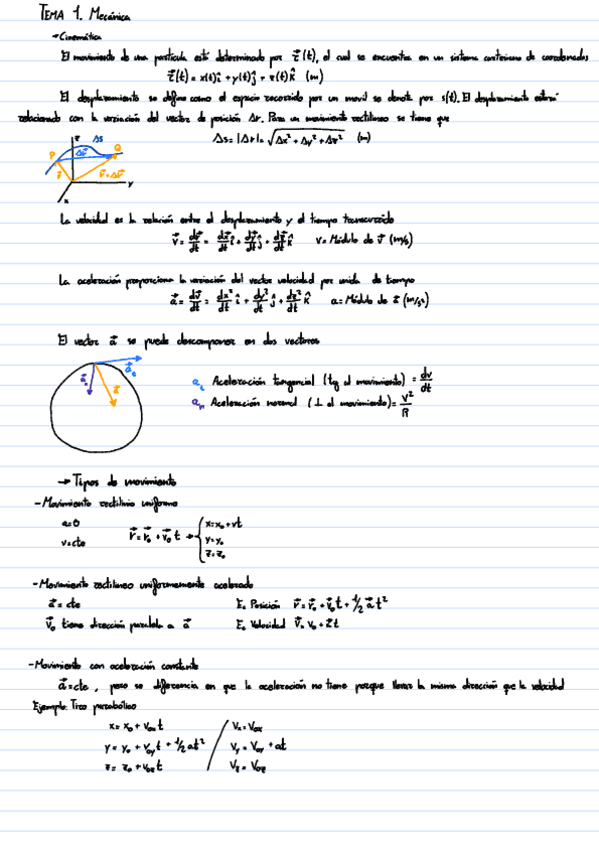 TEMA 1. Mecánica
→Cinemática
El movimiento de una partícula está determinado por r⃗(t), el cual se encuentra en un sistema cartesiano de coordenadas
r⃗(t) = x(t)î + y(t)ĵ + z(t)k̂ (m)
El desplazamiento se define como el espacio recorrido por un movil se denota por s(t). El desplazamiento estará
relacionado con la variación del vector de posición Δr. Para un movimiento rectilíneo se tiene que
Δs = |Δr| = √(Δx² + Δy² + Δz²) (m)
z Δs
P Δr⃗ Q
r⃗ r⃗+Δr⃗
y
x
La velocidad es la relación entre el desplazamiento y el tiempo transcurrido
v⃗ = dr⃗/dt = dx⃗/dt î + dy⃗/dt ĵ + dz⃗/dt k̂ v = Módulo de v⃗ (m/s)
La aceleración proporciona la variación del vector velocidad por unida de tiempo
a⃗ = dv⃗/dt = dx²/dt î + dy²/dt ĵ + dz²/dt k̂ a = Módulo de a⃗ (m/s²)
El vector a⃗ se puede descomponer en dos vectores
a⃗t
a⃗n a⃗
at Aceleración tangencial (tg al movimiento) = dv/dt
an Aceleración normal (⊥ al movimiento) = v²/R
→ Tipos de movimiento
- Movimiento rectilinio uniforme
a=0
v=cte
r⃗ = r⃗₀ + v⃗₀ t → { x = x₀ + vt
y = y₀
z = z₀
- Movimiento rectilineo uniformemente acelerado
a⃗ = cte E. Posición r⃗ = r⃗₀ + v⃗₀t + 1/2 a⃗t²
v⃗₀ tiene dirección paralela a a⃗ E. Velocidad v⃗ = v₀ + a⃗t
- Movimiento con aceleración constante
a⃗=cte, pero se diferencia en que la aceleración no tiene porque llevar la misma dirección que la velocidad
Ejemplo: Tiro parabólico
x = x₀ + v₀ₓt / Vₓ = V₀ₓ
y = y₀ + v₀yt + 1/2 at² / Vy = V₀y + at
z = z₀ + v₀zt / Vz = V₀z